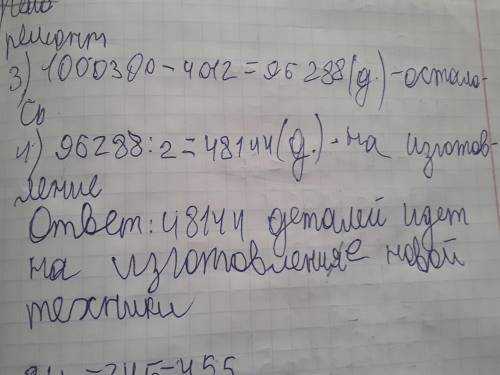 ремонт
3) 1000300-4012=96288(д.)-остало-
сь
4) 96288:2=48144(д.)-на изготов-
ление
Ответ: 48144 деталей идет
на изготовление новой
техники